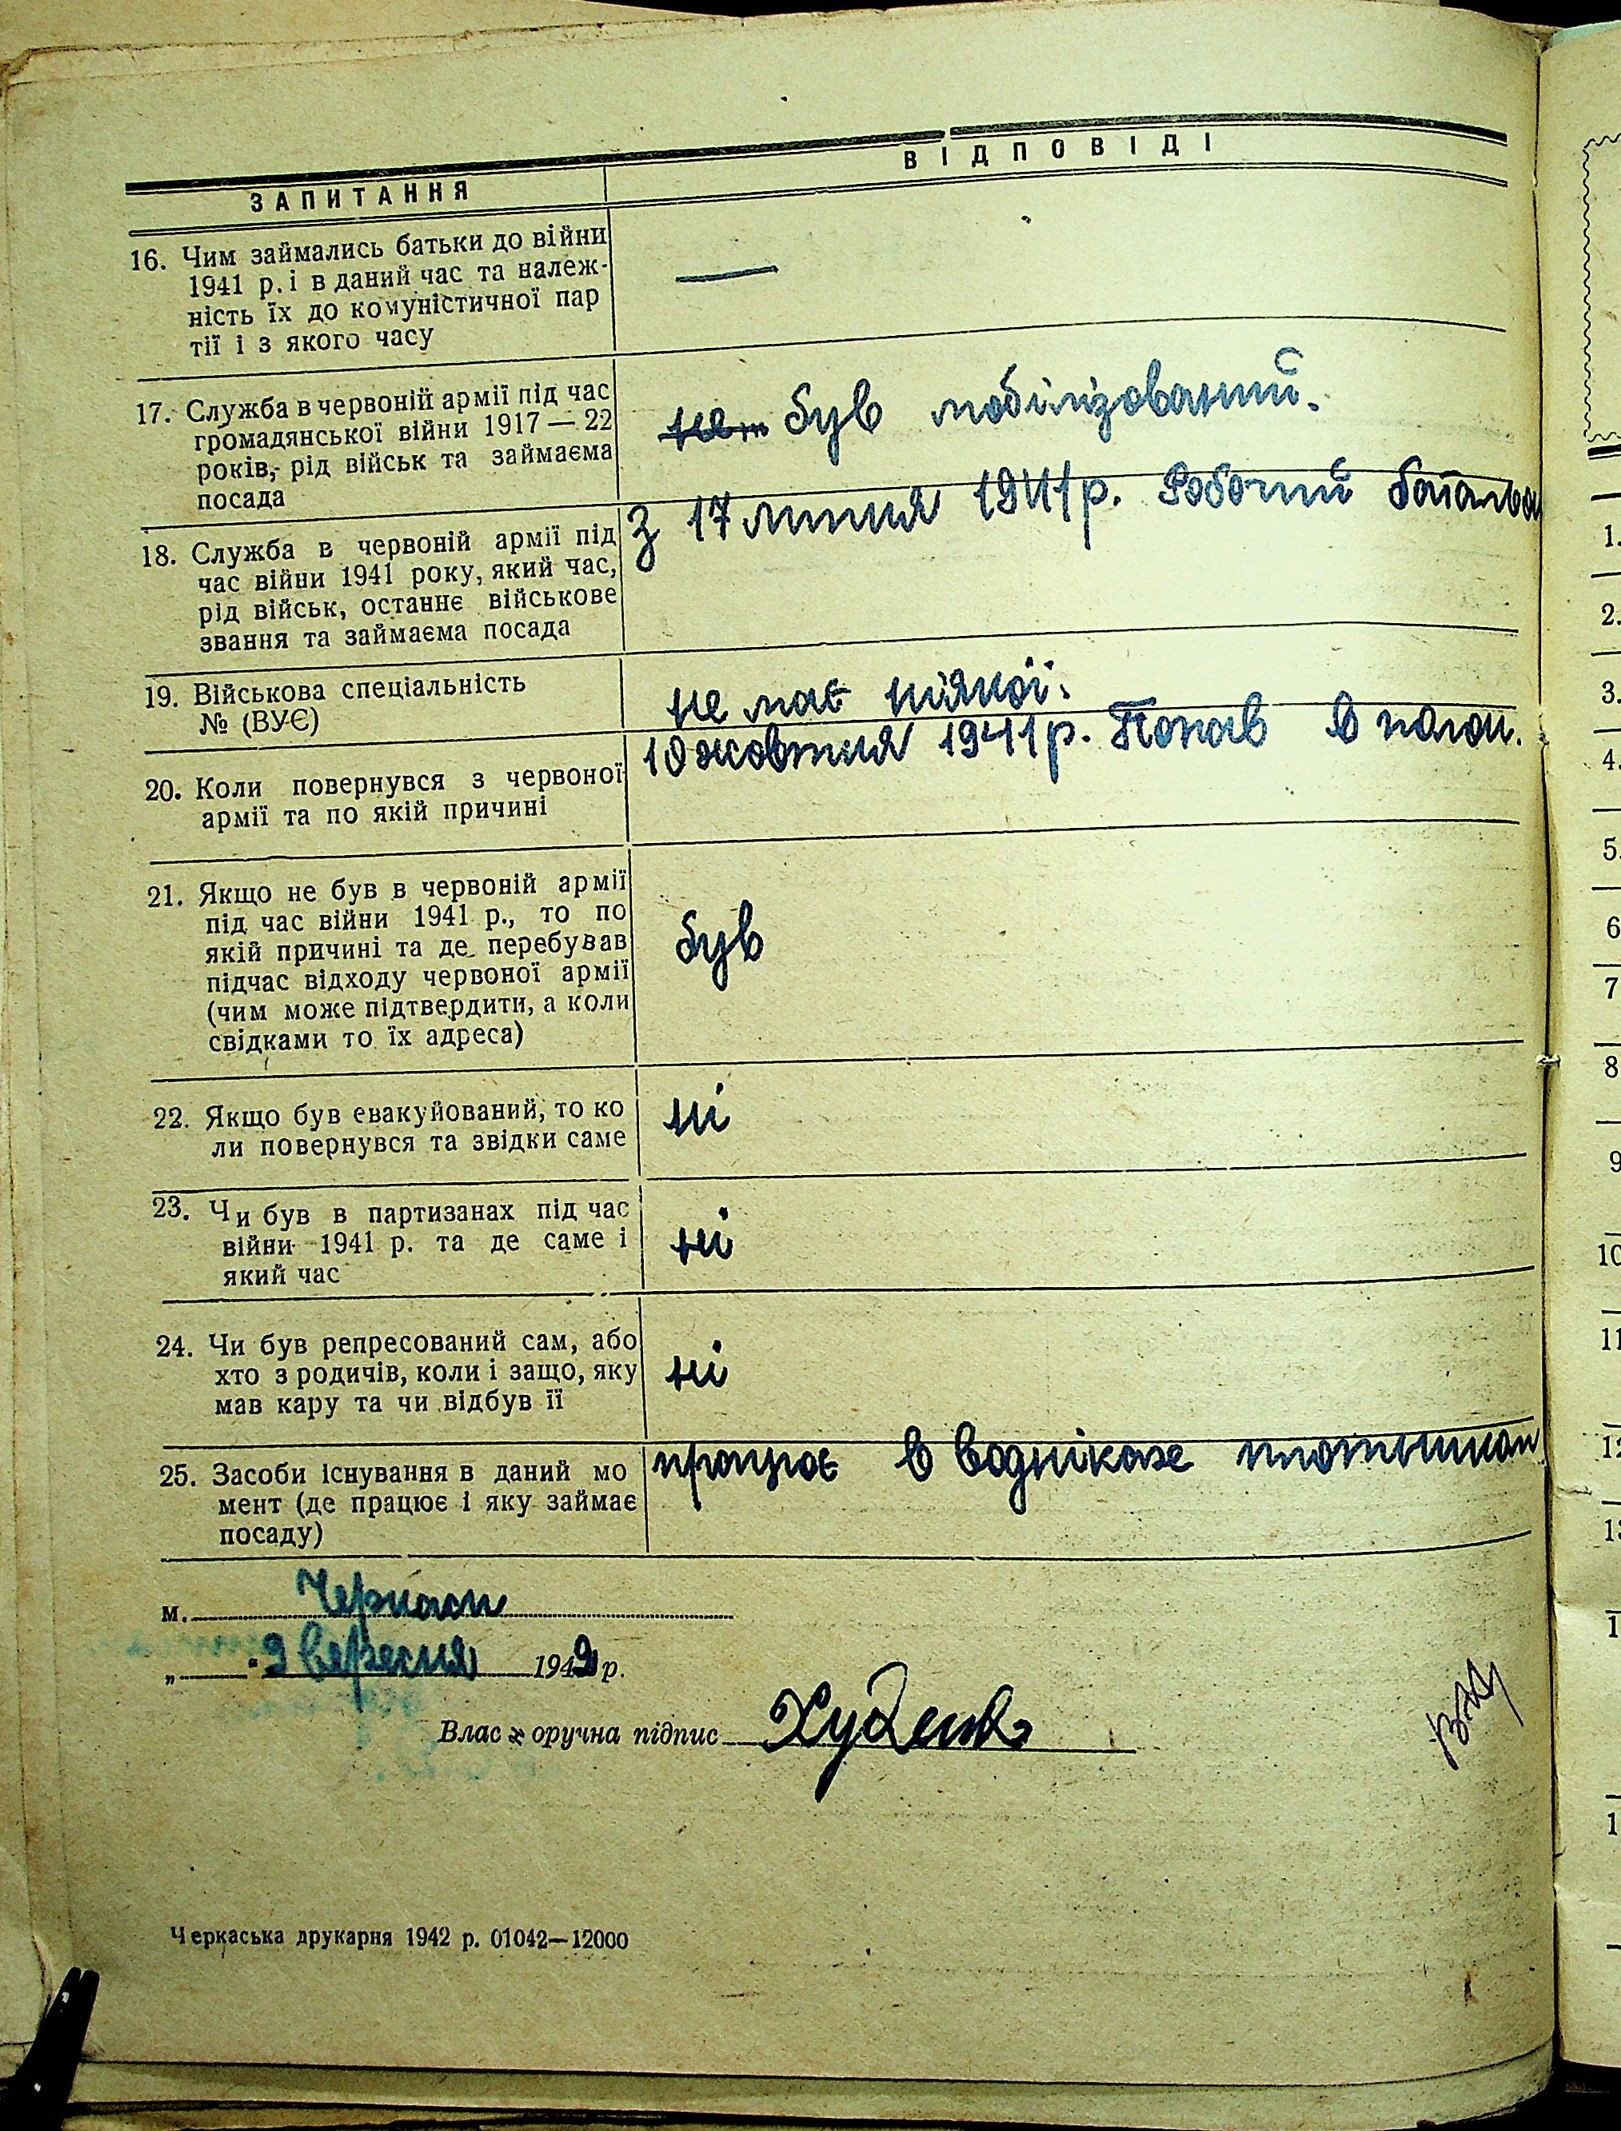 ЗАПИТАННЯ
ВІДПОВІДІ
16. Чим займались батьки до війни
1941 р. і в даний час та належ-
ність їх до комуністичної пар
тії і з якого часу
—
17. Служба в червоній армії під час
громадянської війни 1917 — 22
років, рід військ та займаєма
посада
був мобілізований.
18. Служба в червоній армії під
час війни 1941 року, який час,
рід військ, останнє військове
звання та займаєма посада
З 17 липня 1941 р. Робочий батальо
19. Військова спеціальність
№ (ВУЄ)
не має ніякої.
20. Коли повернувся з червоної
армії та по якій причині
10 жовтня 1941 р. Попав в полон.
21. Якщо не був в червоній армії
під час війни 1941 р., то по
якій причині та де перебував
підчас відходу червоної армії
(чим може підтвердити, а коли
свідками то їх адреса)
був
22. Якщо був евакуйований, то ко
ли повернувся та звідки саме
ні
23. Чи був в партизанах під час
війни 1941 р. та де саме і
який час
ні
24. Чи був репресований сам, або
хто з родичів, коли і защо, яку
мав кару та чи відбув її
ні
25. Засоби існування в даний мо
мент (де працює і яку займає
посаду)
працює в воднікаже плотником
м. Черкаси
„ “ 9 вересня 1942 р.
Влас оручна підпис
Черкаська друкарня 1942 р. 01042—12000
1.
2.
3.
4.
5.
6
7
8
9
10
11